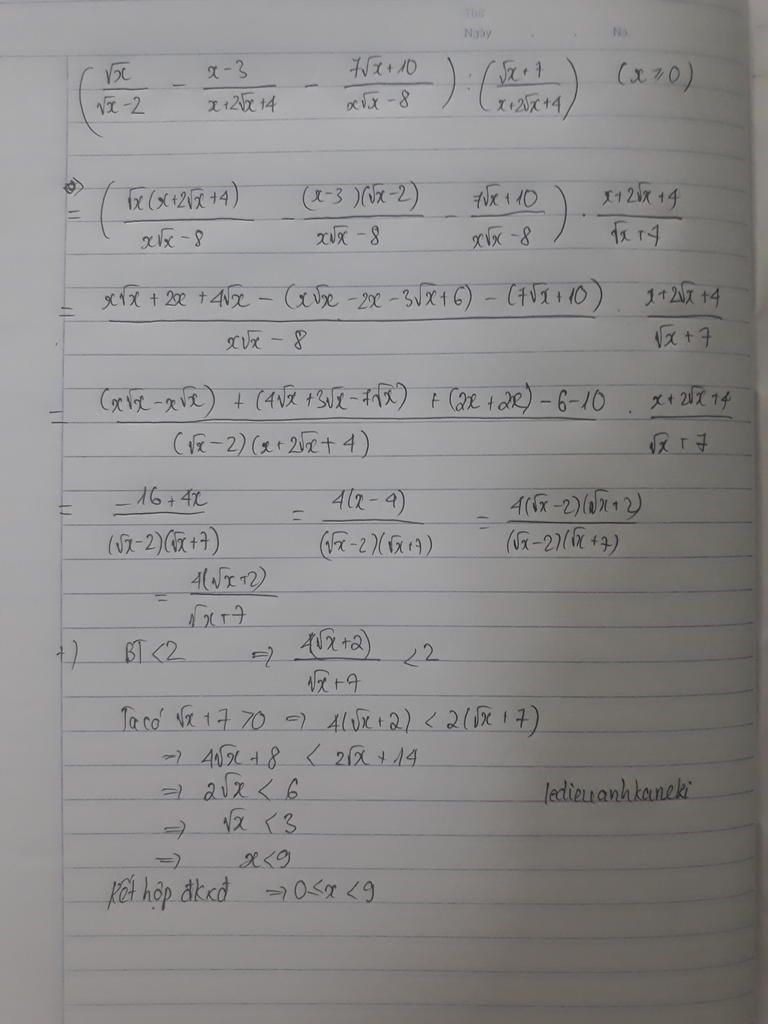 Thứ
Ngày . . No.
(√x/(√x-2) - (x-3)/(x+2√x+4) - (7√x+10)/(x√x-8)) : ((√x+7)/(x+2√x+4)) (x≥0)
= (√x(x+2√x+4)/(x√x-8) - (x-3)(√x-2)/(x√x-8) - (7√x+10)/(x√x-8)) . (x+2√x+4)/(√x+7)
= (x√x+2x+4√x-(x√x-2x-3√x+6)-(7√x+10))/(x√x-8) . (x+2√x+4)/(√x+7)
= ((x√x-x√x)+(4√x+3√x-7√x)+(2x+2x)-6-10)/((√x-2)(x+2√x+4)) . (x+2√x+4)/(√x+7)
= (-16+4x)/((√x-2)(√x+7)) = 4(x-4)/((√x-2)(√x+7)) = 4(√x-2)(√x+2)/((√x-2)(√x+7))
= 4(√x+2)/(√x+7)
+) BT<2 => 4(√x+2)/(√x+7) <2
Ta có √x+7>0 => 4(√x+2) < 2(√x+7)
=> 4√x+8 < 2√x+14
=> 2√x < 6
ledieuanhkaneki
=> √x <3
=> x<9
Kết hợp đkxđ => 0≤x<9